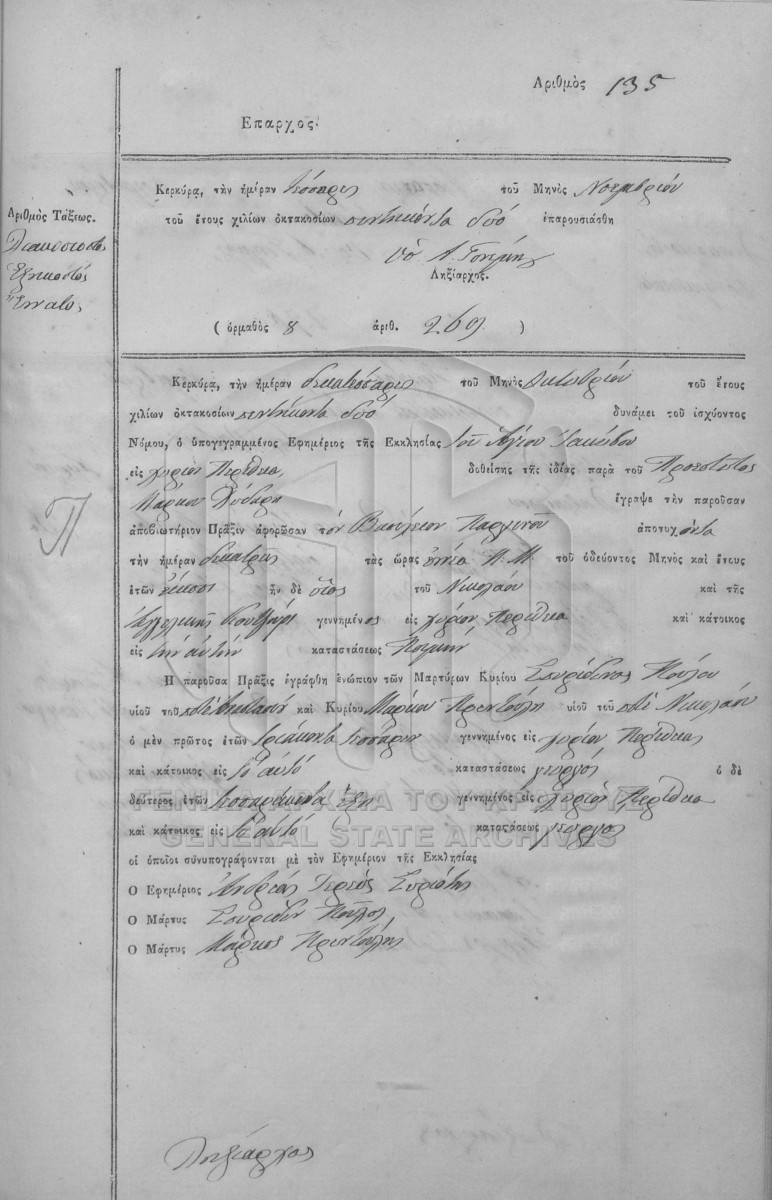 Αριθμὸς 135
Επαρχος.
Κερκύρᾳ, τὴν ἡμέραν τέσσαρες τοῦ Μηνὸς Νοεμβρίου
Αριθμὸς Τάξεως.
τοῦ ἔτους χιλίων ὀκτακοσίων πεντήκοντα δύο ἐπαρουσιάσθη
Διακοσιοστὸς
Ἑξηκοστός
Ἔννατος
Ληξίαρχος.
( ὁρμαθὸς 8 ἀριθ. 269 )
Κερκύρᾳ, τὴν ἡμέραν δεκατέσσαρες τοῦ Μηνὸς Οκτωβρίου τοῦ ἔτους
χιλίων ὀκτακοσίων πεντήκοντα δύο δυνάμει τοῦ ἰσχύοντος
Νόμου, ὁ ὑπογεγραμμένος Εφημέριος τῆς Εκκλησίας τοῦ Ἁγίου Ἰακώβου
εἰς χωρίον Περίθεια δοθείσης τῆς ἰδίας παρὰ τοῦ Προεστῶτος
Μάρκου ἔγραψε τὴν παροῦσαν
ἀποβιωτήριον Πρᾶξιν ἀφορῶσαν τὸν Βασίλειον Παργινοῦ ἀποτυχόντα
Π
τὴν ἡμέραν δεκατρεῖς τὰς ὥρας ἐννέα Π. Μ. τοῦ ὁδεύοντος Μηνὸς καὶ ἔτους
ἐτῶν εἴκοσι ἦν δὲ υἱος τοῦ Νικολάου καὶ τῆς
Ἀγγελικῆς γεννημένος εἰς χωρίον Περίθεια καὶ κάτοικος
εἰς τὴν αὐτήν καταστάσεως Ποιμήν
Η παροῦσα Πρᾶξις ἐγράφθη ἐνώπιον τῶν Μαρτύρων Κυρίου Σπυρίδωνος Πούλου
υἱοῦ τοῦ ποτὲ καὶ Κυρίου Μάρκου Πρεντούλη υἱοῦ τοῦ ποτὲ Νικολάου
ὁ μὲν πρῶτος ἐτῶν τριάκοντα τέσσαρων γεννημένος εἰς χωρίον Περίθεια
καὶ κάτοικος εἰς τὸ αὐτὸ καταστάσεως γεωργός ὁ δὲ
δεύτερος ἐτῶν τεσσαράκοντα ἕξη γεννημένος εἰς χωρίον Περίθεια
καὶ κάτοικος εἰς τὸ αὐτὸ καταστάσεως γεωργός
οἱ ὁποῖοι συνυπογράφονται μὲ τὸν Εφημέριον τῆς Εκκλησίας
Ο Εφημέριος Ἀνδρέας Ἱερεὺς Συριώτης
Ο Μάρτυς Σπυρίδων Πούλος
Ο Μάρτυς Μάρκος Πρεντούλης
Ληξίαρχος
ΓΕΝΙΚΑ ΑΡΧΕΙΑ ΤΟΥ ΚΡΑΤΟΥΣ
GENERAL STATE ARCHIVES